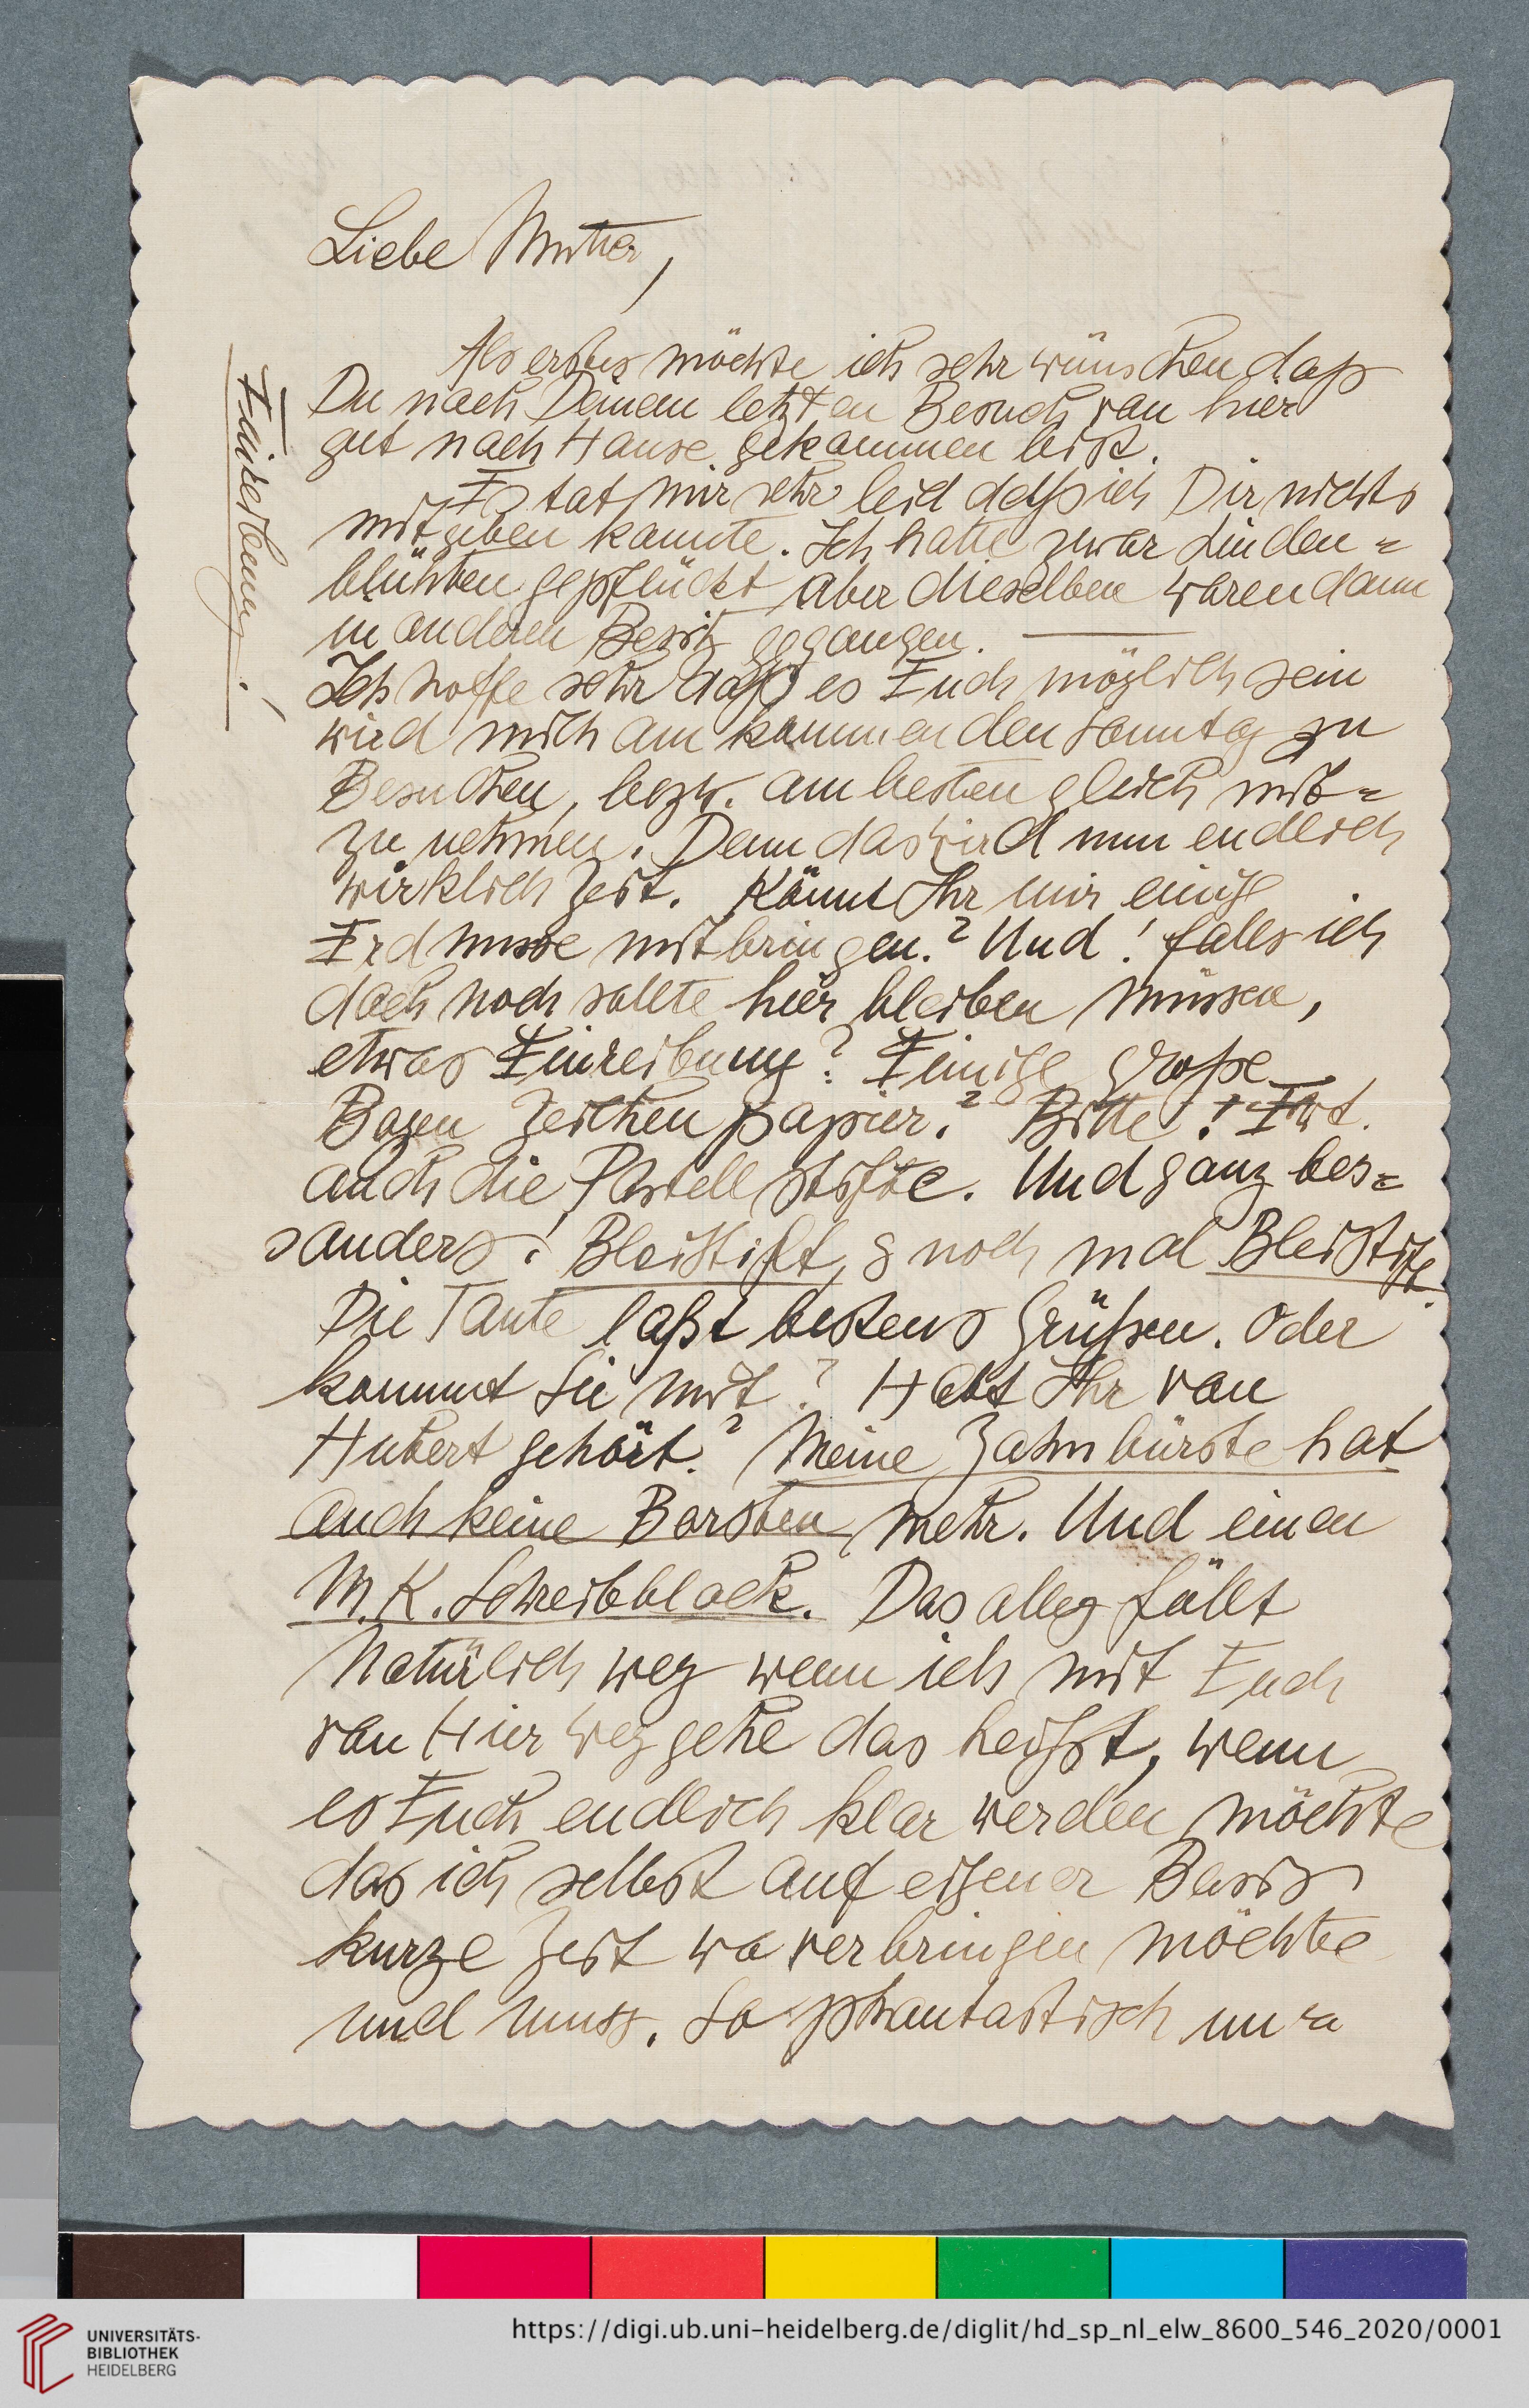 Liebe Mutter,
Als erstes möchte ich sehr wünschen daß
Du nach Deinem letzten Besuch von hier
gut nach Hause gekommen bist.
Es tat mir sehr leid daß ich Dir nichts
mitgeben konnte. Ich hatte zwar Linden=
blühten gepflückt aber dieselben waren dann
in anderen Besitz gegangen.
Ich hoffe sehr daß es Euch möglich sein
wird mich am kommenden Sonntag zu
Besuchen, bezw. am besten gleich mit=
zu nehmen. Denn das wird nun endlich
wirklich Zeit. Könnt Ihr mir einige
Erdnusse mitbringen? Und! falls ich
doch noch sollte hier bleiben müssen,
etwas Einreibung? Einige große
Bogen Zeichenpapier? Bitte!
auch die Pastellstifte. Und ganz bes=
sonders! Bleistift, & noch mal Bleistift.
Die Tante laßt bestens Grüßen. Oder
kommt Sie mit? Habt Ihr von
Hubert gehört? Meine Zahnbürste hat
auch keine Borsten mehr. Und einen
M.K. Schreibblock. Das alles fällt
Natürlich weg wenn ich mit Euch
von Hier weg gehe das heißt, wenn
es Euch endlich klar werden möchte
das ich selbst auf eigener Basis
kurze Zeit wo verbringen möchte
und muss. So phantastisch
Einreibung!
UNIVERSITÄTS-
BIBLIOTHEK
HEIDELBERG
https://digi.ub.uni-heidelberg.de/diglit/hd_sp_nl_elw_8600_546_2020/0001